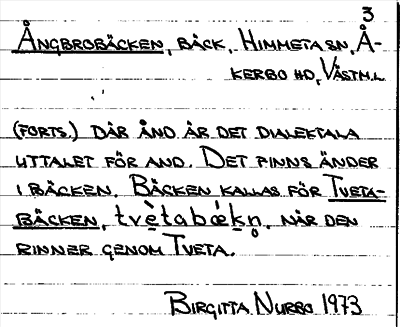 3
Ångbrobäcken, bäck, Himmeta sn, Å-
kerbo hd, Västm.l
(forts.) där ånd är det dialektala
uttalet för and. Det finns änder
i bäcken. Bäcken kallas för Tveta-
bäcken, tvètabæ̀kn̥, när den
rinner genom Tveta.
Birgitta Nurbo 1973